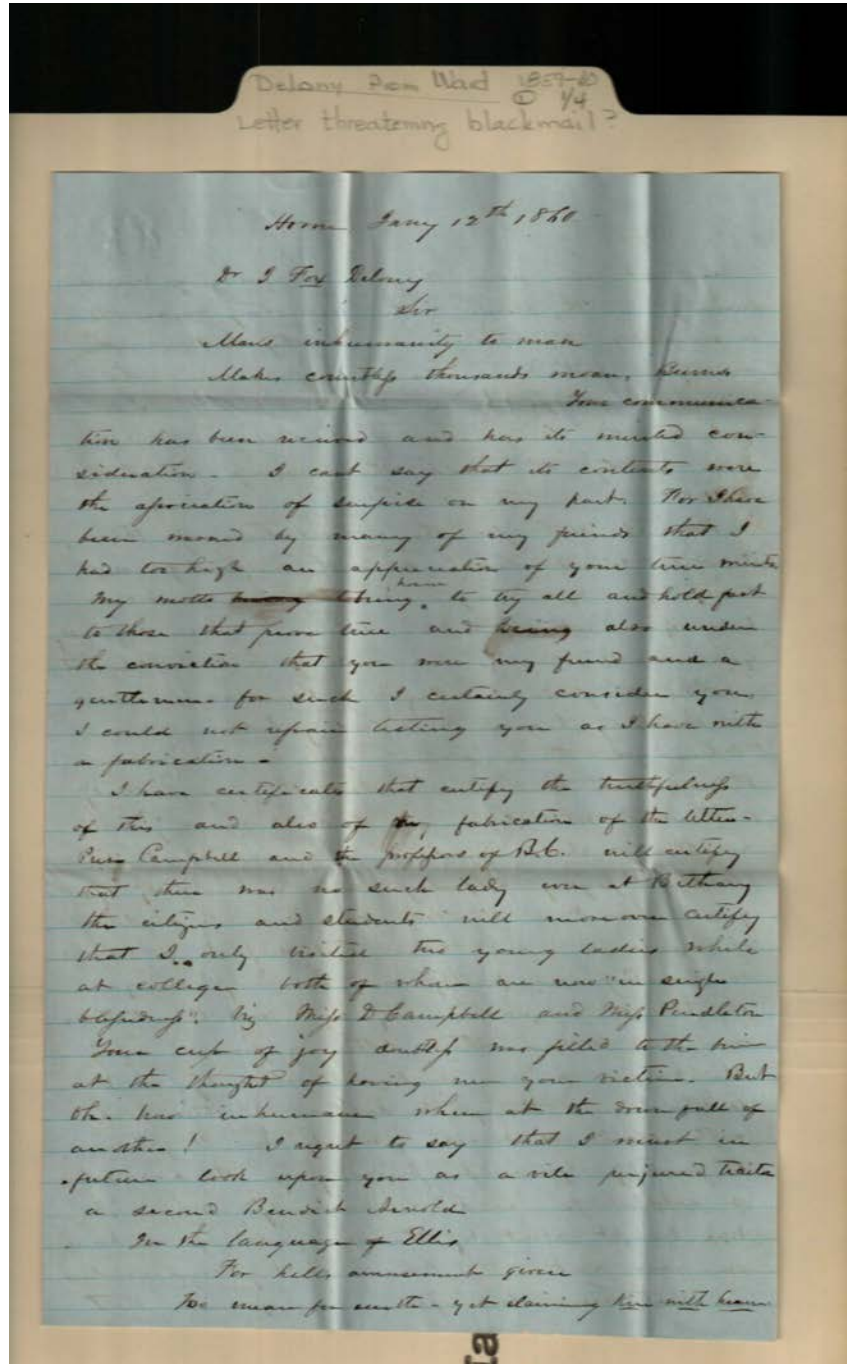 Delony from Ward 1859-60
① 1/4
Letter threatening blackmail?
Home Jany 12th 1860
Dr J Fox Delony
Sir
Mans inhumanity to man
Makes countless thousands moan, Burns
Your communica-
tion has been received and has its merited con-
sideration - I cant say that its contents were
the of surprise on my part. For I have
been warned by many of my friends that I
had too high an appreciation of your true merits
My motto being to try all and hold fast
to those that prove true and being also under
the conviction that you were my friend and a
gentleman - for such I certainly consider you,
I could not refrain testing you as I have with
a fabrication -
I have certificates that certify the truthfulness
of this and also of my fabrication of the letter -
Pres Campbell and the professors of B.C. will certify
that there was no such lady ever at Bethany
the citizens and students will moreover certify
that I only visited two young ladies while
at college both of whom are now "in single
blessedness". viz Miss D Campbell and Miss Pendleton
Your cup of joy doubtless was filled to the brim
at the thought of having me your victim. But
oh. how inhuman when at the downfall of
another! I regret to say that I must in
future look upon you as a vile perjured traitor
a second Benedict Arnold
In the language of Ellis
For hells amusement given
Too mean for earth - yet claiming kin with heaven